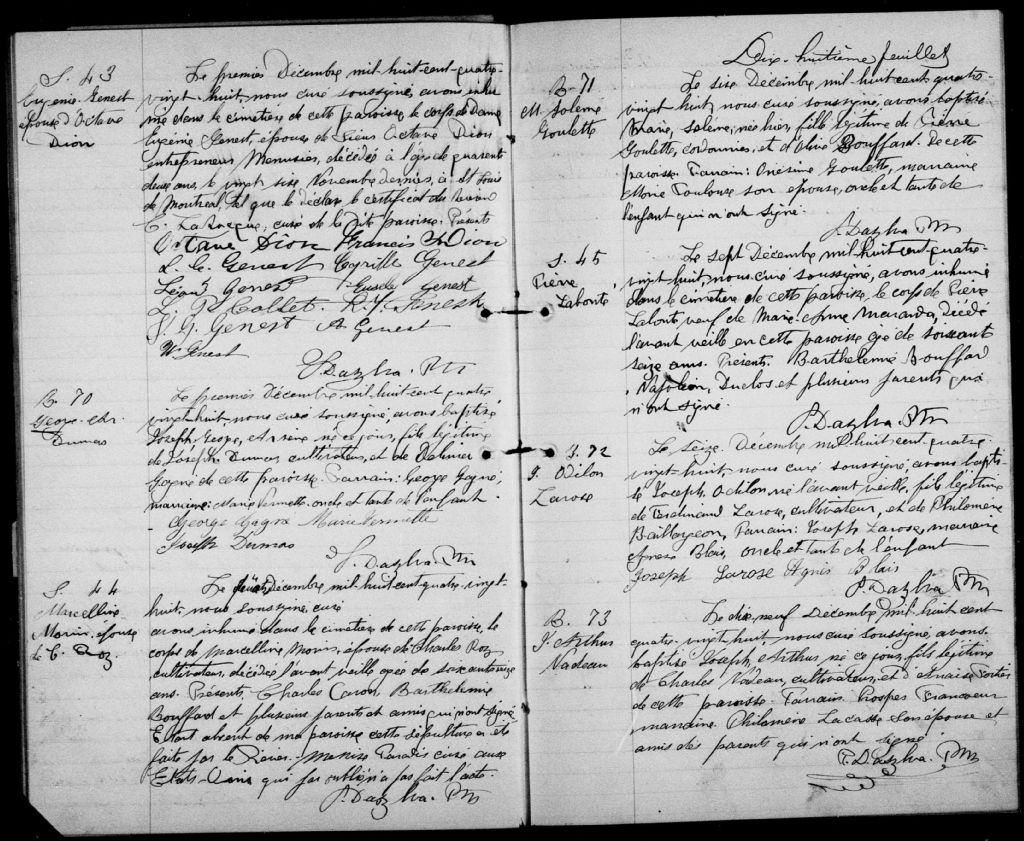 S. 43
Eugénie Genest
épouse d'Octave
Dion
Le premier Décembre mil-huit-cent-quatre-
vingt-huit, nous curé soussigné, avons inhu
mé dans le cimetière de cette paroisse, le corps de Dame
Eugénie Genest, épouse de Sieur Octave Dion
entrepreneur Menusier, décédée à l'age de quarente
deux ans, le vingt six Novembre dernier, à St Louis
de Montréal, tel que le déclare le certificat du Révérend
curé de la dite paroisse. Présents
Octave Dion Francis Dion
L. C. Genest Cyrille Genest
Léon Genest Genest
L. P. Collet. R. J. Genest
J. G. Genest A. Genest
W. Genest
J. Dazylva. Ptr
B. 70
George-
Dumas
Le premier Décembre mil huit cent quatre
vingt-huit, nous curé soussigné, avons baptisé
Joseph, George, né ce jour, fils légitime
de Joseph Dumas cultivateur, et de
Gagné de cette paroisse. Parrain: George Gagné,
marraine: Marie Vermette oncle et tante de l'enfant.
George Gagné Marie Vermette
Joseph Dumas
J. Dazylva. Ptr
S. 44
Marcelline
Morin, épouse
de C. Roy.
Le Décembre mil huit-cent-quatre-vingt-
huit, nous soussigné, curé
avons, inhumé dans le cimetière de cette paroisse, le
corps de Marcelline Morin, épouse de Charles Roy
cultivateur, décédée l'avant veille agée de soixante seize
ans. Présents. Charles Caron, Barthelemie
Bouffard et plusieurs parents et amis qui n'ont signé.
Etant absent de ma paroisse cette sépulture a été
faite par le Révér. Paradis curé aux
Etats-Unis qui par oubli n'a pas fait l'acte.
J. Dazylva. Ptr
Dix-huitième feuillet
B. 71
M. Solème
Goulette
Le six Décembre mil huit cent quatre-
vingt huit, nous curé soussigné, avons baptisé
Marie, née hier, fille légitime de Pierre
Goulette, cordonnier, et d'Olive Bouffard. De cette
paroisse. Parrain: Onésime Goulette, marraine
Marie Toulouse son épouse, oncle et tante de
l'enfant qui n'ont signé.
J. Dazylva Ptr
S. 45
Pierre
Labonté
Le sept Décembre mil huit-cent-quatre-
vingt-huit, nous curé soussigné, avons inhumé
dans le cimetière de cette paroisse, le corps de Pierre
Labonté veuf de Marie-Anne Maranda, décédé
l'avant veille en cette paroisse agé de soixante
seize ans. Présents. Barthelemie Bouffard
Napoléon, Duclos et plusieurs parents qui
n'ont signé.
J. Dazylva. Ptr
B. 72
J. Odilon
Larose
Le seize Décembre mil huit-cent-quatre-
vingt-huit, nous curé soussigné, avons bapti-
sé Joseph Odilon, né l'avant veille, fils légitime
de Ferdinand Larose, cultivateur, et de Philomène
Baillargeon, Parrain: Joseph Larose, marraine
Agnes Blais, oncle et tante de l'enfant
Joseph Larose Agnès Blais
J. Dazylva Ptr
B. 73
J. Arthur
Nadeau
Le dix-neuf Décembre mil huit cent
quatre-vingt-huit, nous curé soussigné, avons
baptisé Joseph, Arthur, né ce jour, fils légitime
de Charles Nadeau, cultivateur, et d'
de cette paroisse. Parrain Prosper Francoeur
marraine Philomène Lacasse son épouse et
amis des parents qui n'ont signé.
J. Dazylva. Ptr